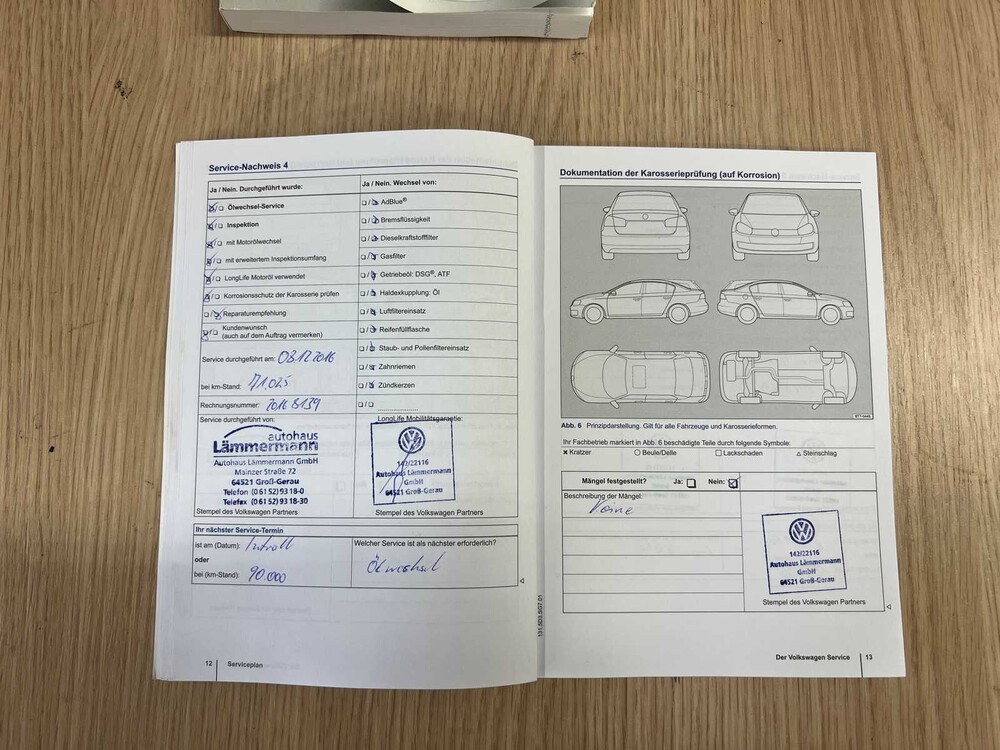 Service-Nachweis 4
Ja / Nein. Durchgeführt wurde:
Ölwechsel-Service
Inspektion
mit Motorölwechsel
mit erweitertem Inspektionsumfang
LongLife Motoröl verwendet
Korrosionsschutz der Karosserie prüfen
Reparaturempfehlung
Kundenwunsch
(auch auf dem Auftrag vermerken)
Service durchgeführt am: 08.12.2016
bei km-Stand: 71.025
Rechnungsnummer: 2016 8139
Service durchgeführt von:
autohaus
Lämmermann
Autohaus Lämmermann GmbH
Mainzer Straße 72
64521 Groß-Gerau
Telefon (0 61 52) 93 18-0
Telefax (0 61 52) 93 18-30
Stempel des Volkswagen Partners
Ja / Nein. Wechsel von:
AdBlue®
Bremsflüssigkeit
Dieselkraftstofffilter
Gasfilter
Getriebeöl: DSG®, ATF
Haldexkupplung: Öl
Luftfiltereinsatz
Reifenfüllflasche
Staub- und Pollenfiltereinsatz
Zahnriemen
Zündkerzen
LongLife Mobilitätsgarantie:
142/22116
Autohaus Lämmermann
GmbH
64521 Groß-Gerau
Stempel des Volkswagen Partners
Ihr nächster Service-Termin
ist am (Datum):
oder
bei (km-Stand): 90.000
Welcher Service ist als nächster erforderlich?
Ölwechsel
12 Serviceplan
131.5D3.SG7.01
Dokumentation der Karosserieprüfung (auf Korrosion)
Abb. 6 Prinzipdarstellung. Gilt für alle Fahrzeuge und Karosserieformen.
Ihr Fachbetrieb markiert in Abb. 6 beschädigte Teile durch folgende Symbole:
Kratzer Beule/Delle Lackschaden Steinschlag
Mängel festgestellt? Ja: Nein:
Beschreibung der Mängel:
Keine
142/22116
Autohaus Lämmermann
GmbH
64521 Groß-Gerau
Stempel des Volkswagen Partners
Der Volkswagen Service 13